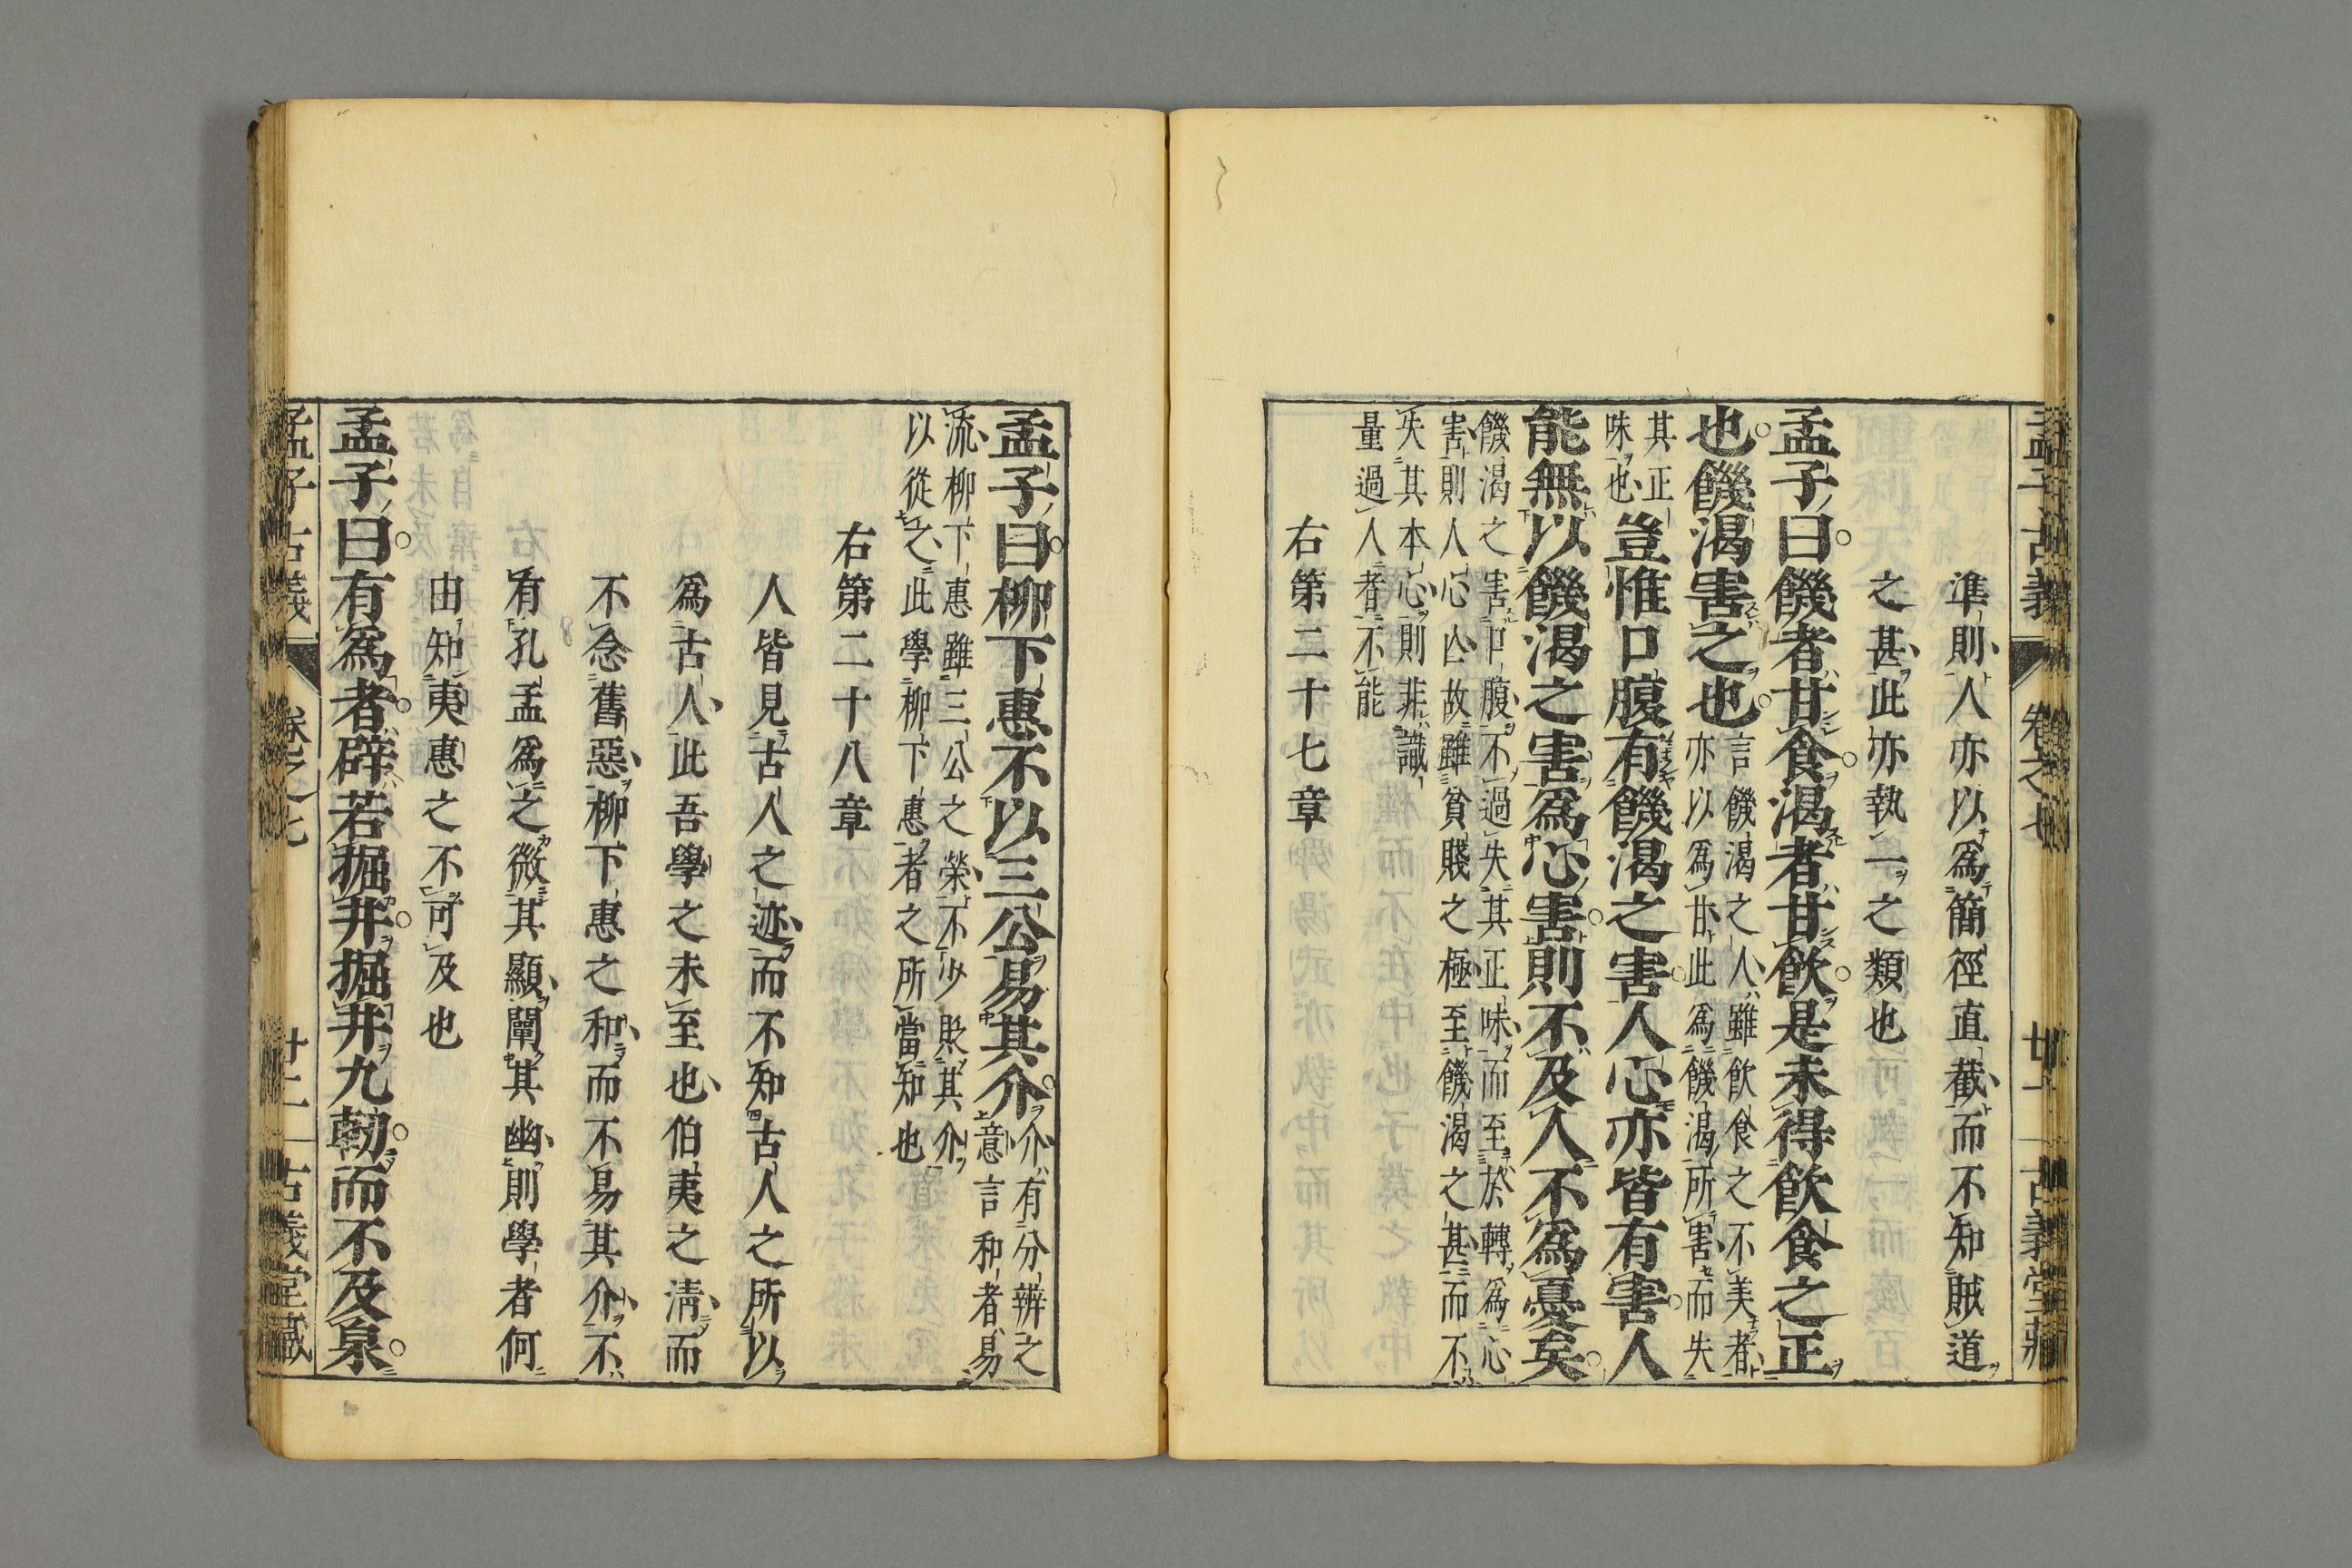 孟子古義 卷之七 廿一 古義堂藏
準則人亦以爲簡徑直截而不知賊道
之甚此亦執一之類也
孟子曰饑者甘食渴者甘飲是未得飲食之正
也饑渴害之也
言饑渴之人雖飲食之不美者
亦以爲甘此爲饑渴所害而失
其正
味也
豈惟口腹有饑渴之害人心亦皆有害人
能無以饑渴之害爲心害則不及人不爲憂矣
饑渴之害口腹不過失其正味而至於轉爲心
害則人心亾故雖貧賤之極至饑渴之甚而不
失其本心則非識
量過人者不能
右第二十七章
孟子曰柳下惠不以三公易其介
介有分辨之
意言和者易
流柳下惠雖三公之榮不少貶其介
以從之此學柳下惠者之所當知也
右第二十八章
人皆見古人之迹而不知古人之所以
爲古人此吾學之未至也伯夷之淸而
不念舊惡柳下惠之和而不易其介不
有孔孟爲之微其顯闡其幽則學者何
由知夷惠之不可及也
孟子曰有爲者辟若掘井掘井九軔而不及泉
孟子古義 卷之七 廿二 古義堂藏